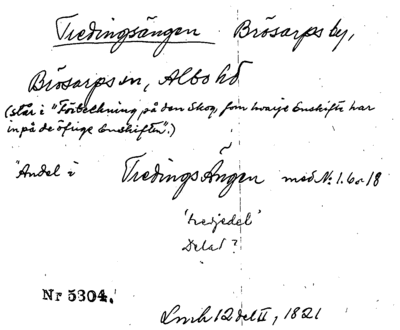 Tredingsängen Brösarps by,
Brösarps sn, Albo hd
(står i "Förteckning på den Skog, som hvarje Enskifte har
inpå de öfrige Enskiften".)
"Andel i TredingsÄngen med No. 1. 6 or 18
'tredjedel'
Delad?
Nr 5804.
Lmk 12 del II, 1821